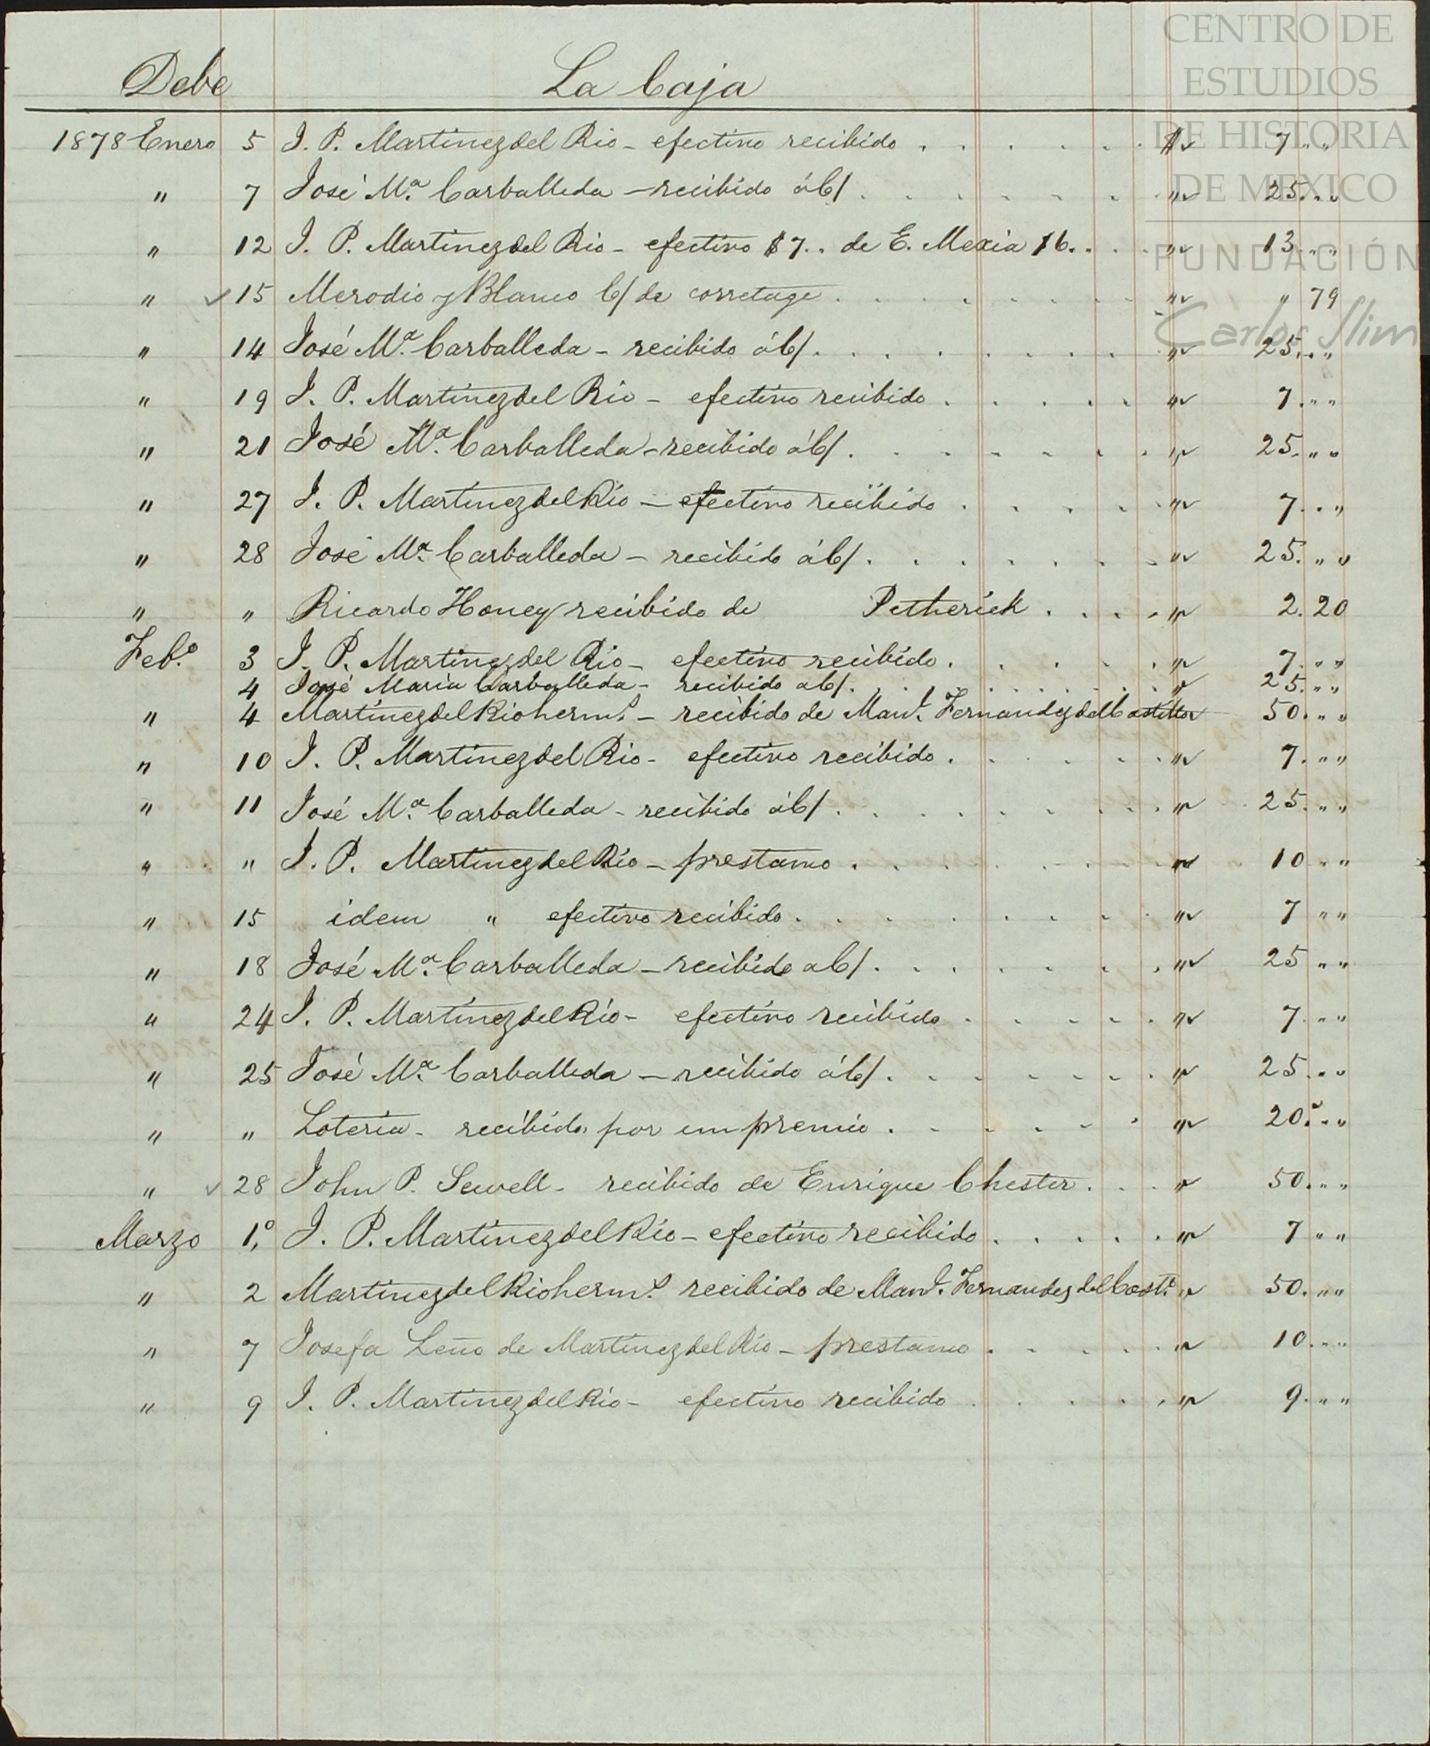 CENTRO DE
ESTUDIOS
DE HISTORIA
DE MEXICO
FUNDACIÓN
Carlos Slim
Debe La Caja
1878 Enero 5 J. P. Martinez del Rio - efectivo recibido . . . . . . $ 7 " "
" 7 José Ma. Carballeda - recibido á C/ . . . . . . . " 25 " "
" 12 J. P. Martinez del Rio - efectivo $7.. de E. Mexia $6. . . . " 13 " "
" 15 Merodio y Blanco C/ de corretage . . . . . . . " " 79
" 14 José Ma. Carballeda - recibido á C/ . . . . . . . " 25 " "
" 19 J. P. Martinez del Rio - efectivo recibido . . . . . " 7 " "
" 21 José Ma. Carballeda - recibido á C/ . . . . . . . " 25 " "
" 27 J. P. Martinez del Rio - efectivo recibido . . . . . " 7 " "
" 28 José Ma. Carballeda - recibido á C/ . . . . . . . " 25 " "
" " Ricardo Honey recibido de Petherick . . . . " 2. 20
Feb.o 3 J. P. Martinez del Rio - efectivo recibido . . . . . " 7 " "
4 José Maria Carballeda - recibido a C/ . . . . . . . " 25 " "
" 4 Martinez del Rio herms. - recibido de Manl. Fernandez del Castillo " 50 " "
" 10 J. P. Martinez del Rio - efectivo recibido . . . . . " 7 " "
" 11 José Ma. Carballeda - recibido á C/ . . . . . . . " 25 " "
" " J. P. Martinez del Rio - prestamo . . . . . . . " 10 " "
" 15 idem " efectivo recibido . . . . . . . " 7 " "
" 18 José Ma. Carballeda - recibido a C/ . . . . . . . " 25 " "
" 24 J. P. Martinez del Rio - efectivo recibido . . . . . " 7 " "
" 25 José Ma. Carballeda - recibido á C/ . . . . . . . " 25 " "
" " Loteria - recibido por un premio . . . . . . " 20 " "
" 28 John P. Sewell - recibido de Enrique Chester . . . " 50 " "
Marzo 1.o J. P. Martinez del Rio - efectivo recibido . . . . . " 7 " "
" 2 Martinez del Rio herms. recibido de Manl. Fernandez del Casto. " 50 " "
" 7 Josefa Leño de Martinez del Rio - prestamo . . . . . " 10 " "
" 9 J. P. Martinez del Rio - efectivo recibido . . . . . " 9 " "